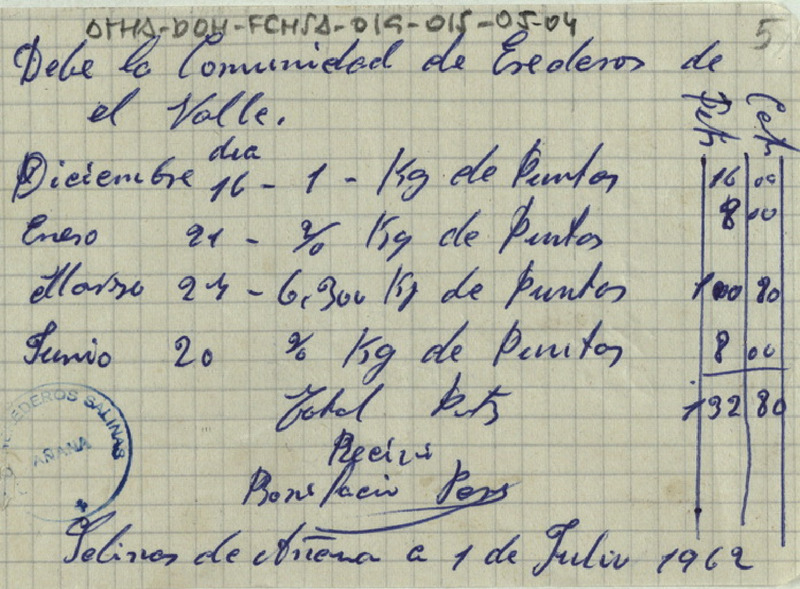 ATHA-DOH-FCHSA-019-015-05-04
5
Debe la Comunidad de Erederos de
el Valle.
Pets Cets
Diciembre dia 16 - 1 - Kg de Puntas 16 00
Enero 21 - ½ Kg de Puntas 8 00
Marzo 27 - 6,300 Kg de Puntas 100 80
Junio 20 ½ Kg de Puntas 8 00
Total Pts 132 80
EREDEROS SALINAS
AÑANA
Recivi
Bonifacio
Salinas de Añana a 1 de Julio 1962